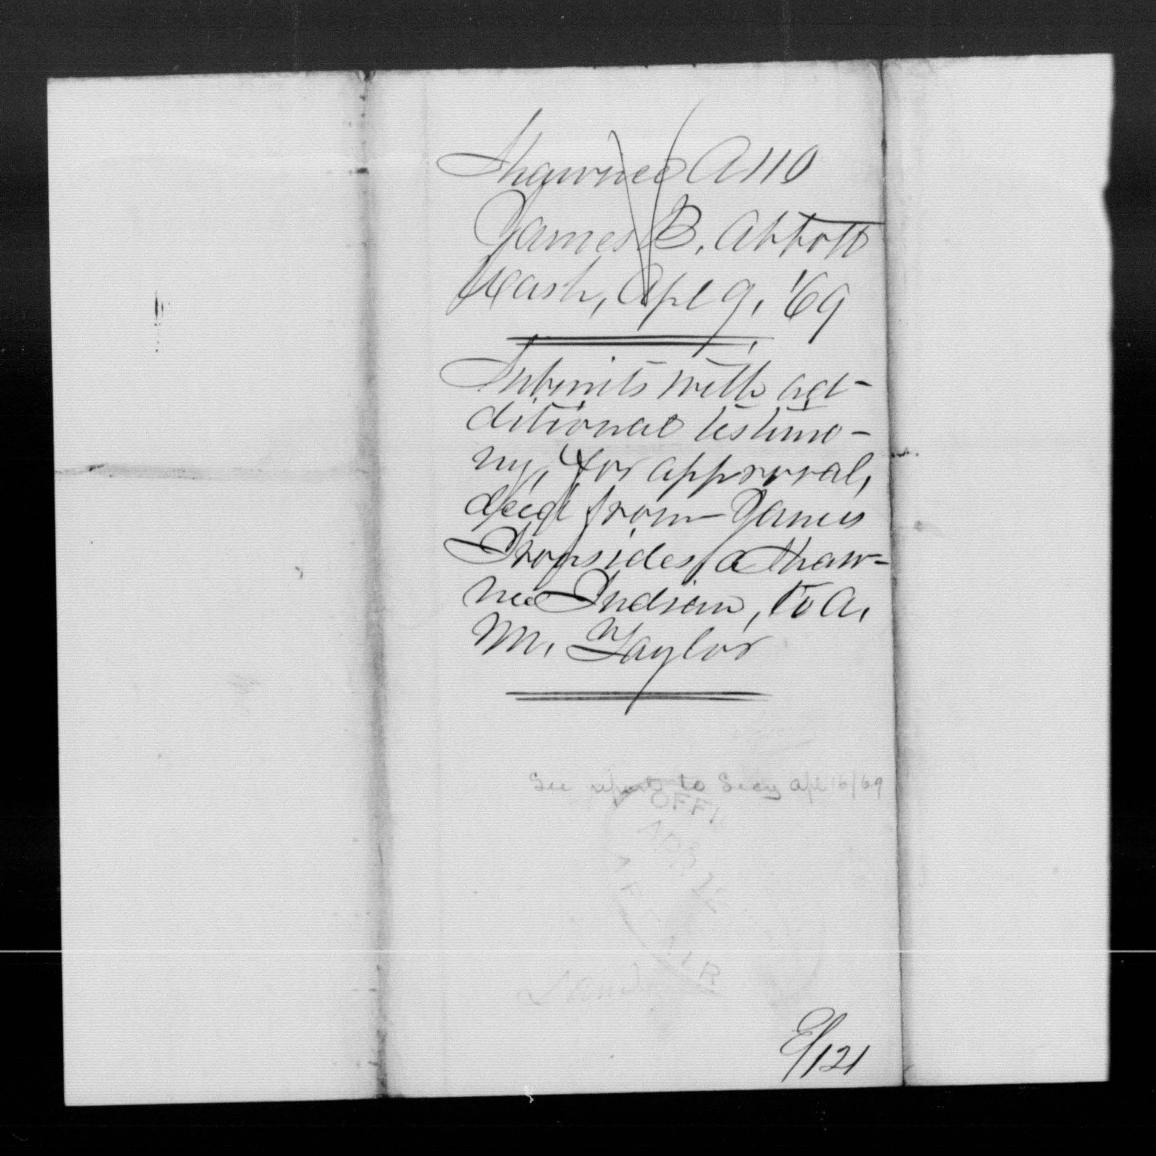 Shawnee A110
James B. Abbott
Wash, Apl 9, '69
Submits with ad-
ditional testimo-
ny, for approval,
deed from James
Ironsides, a Shaw-
nee Indian, to A.
M. Taylor
See report to Secy Apl 16/69
OFFI
APR 12
AFFAIR
Land
E/121